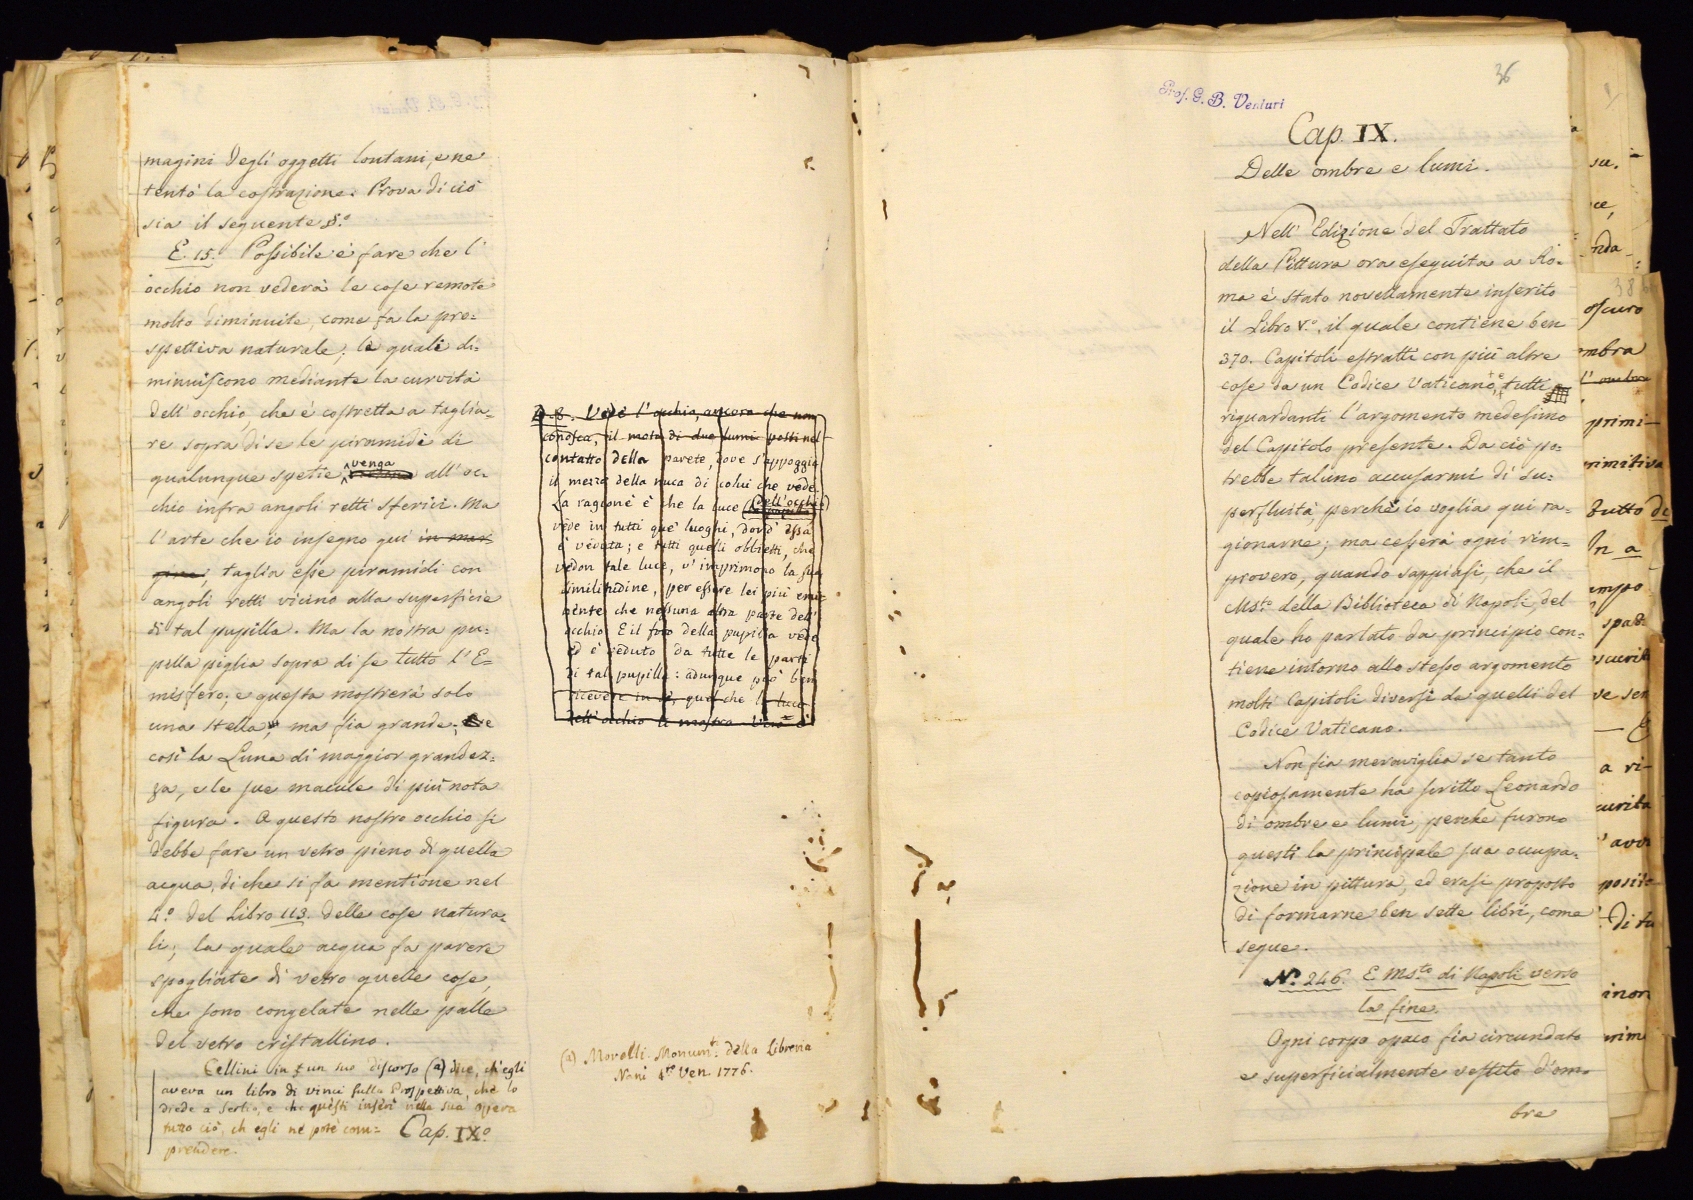 magini degli oggetti lontani, e ne
tentò la costruzione. Prova di ciò
sia il seguente §.º
E. 15. Possibile è fare che l'
occhio non vederà le cose remote
molto diminuite, come fa la pro=
spettiva naturale; le quali di=
minuiscono mediante la curvità
dell'occhio, che è costretta a taglia=
re sopra di se le piramidi di
qualunque spetie venga all'oc=
chio infra angoli retti sferici. Ma
l'arte che io insegno qui in mar=
gine, taglia esse piramidi con
angoli retti vicino alla superficie
di tal pupilla. Ma la nostra pu=
pilla piglia sopra di se tutto l'E=
misfero; e questa mostrerà solo
una stella; ma fia grande; e
così la Luna di maggior grandez=
za, e le sue macule di più nota
figura. A questo nostro occhio si
debbe fare un vetro pieno di quella
acqua, di che si fa mentione nel
4.º del Libro 113. delle cose natura=
li; la quale acqua fa parere
spogliate di vetro quelle cose,
che sono congelate nelle palle
del vetro cristallino.
Cellini in un suo discorso (a) dice, ch'egli
aveva un libro di Vinci sulla Prospettiva, che lo
diede a Serlio, e che questi inserì nella sua opera
tutto ciò, ch'egli ne potè com=
prendere.
Cap. IX.º
D. 8. Vede l'occhio, ancora che non
conosca, il moto di due lumi posti nel
contatto della parete, dove s'appoggia
il mezzo della nuca di colui che vede.
La ragione è che la luce (dell'occhio)
vede in tutti que' luoghi, dov'è essa
è veduta; e tutti quelli obbietti, che
vedon tale luce, v'imprimono la sua
similitudine, per essere lei più emi
nente che nessuna altra parte dell'
occhio. E il foro della pupilla vede
ed è veduto da tutte le parti
di tal pupilla: adunque può ben
ricevere in sè, quel che la luce
dell'occhio li mostra
(a) Morelli. Monum.ti della Libreria
Nani 4.to Ven. 1776.
36
Prof. G. B. Venturi
Cap. IX.
Delle ombre e lumi.
Nell'Edizione del Trattato
della Pittura ora eseguita a Ro=
ma è stato novellamente inserito
il Libro V.º, il quale contiene ben
370. Capitoli estratti con più altre
cose da un Codice Vaticano, tutti
riguardanti l'argomento medesimo
del Capitolo presente. Da ciò po=
trebbe taluno accusarmi di su=
perfluità, perchè io voglia qui ra=
gionarne; ma cesserà ogni rim=
provero, quando sappiasi, che il
Ms.to della Biblioteca di Napoli, del
quale ho parlato da principio con=
tiene intorno allo stesso argomento
molti Capitoli diversi da quelli del
Codice Vaticano.
Non fia meraviglia se tanto
copiosamente ha scritto Leonardo
di ombre e lumi, perchè furono
questi la principale sua occupa=
zione in pittura, ed erasi proposto
di formarne ben sette libri, come
segue.
N.º 246. E Ms.to di Napoli verso
la fine.
Ogni corpo opaco fia circundato
e superficialmente vestito d'om=
bre